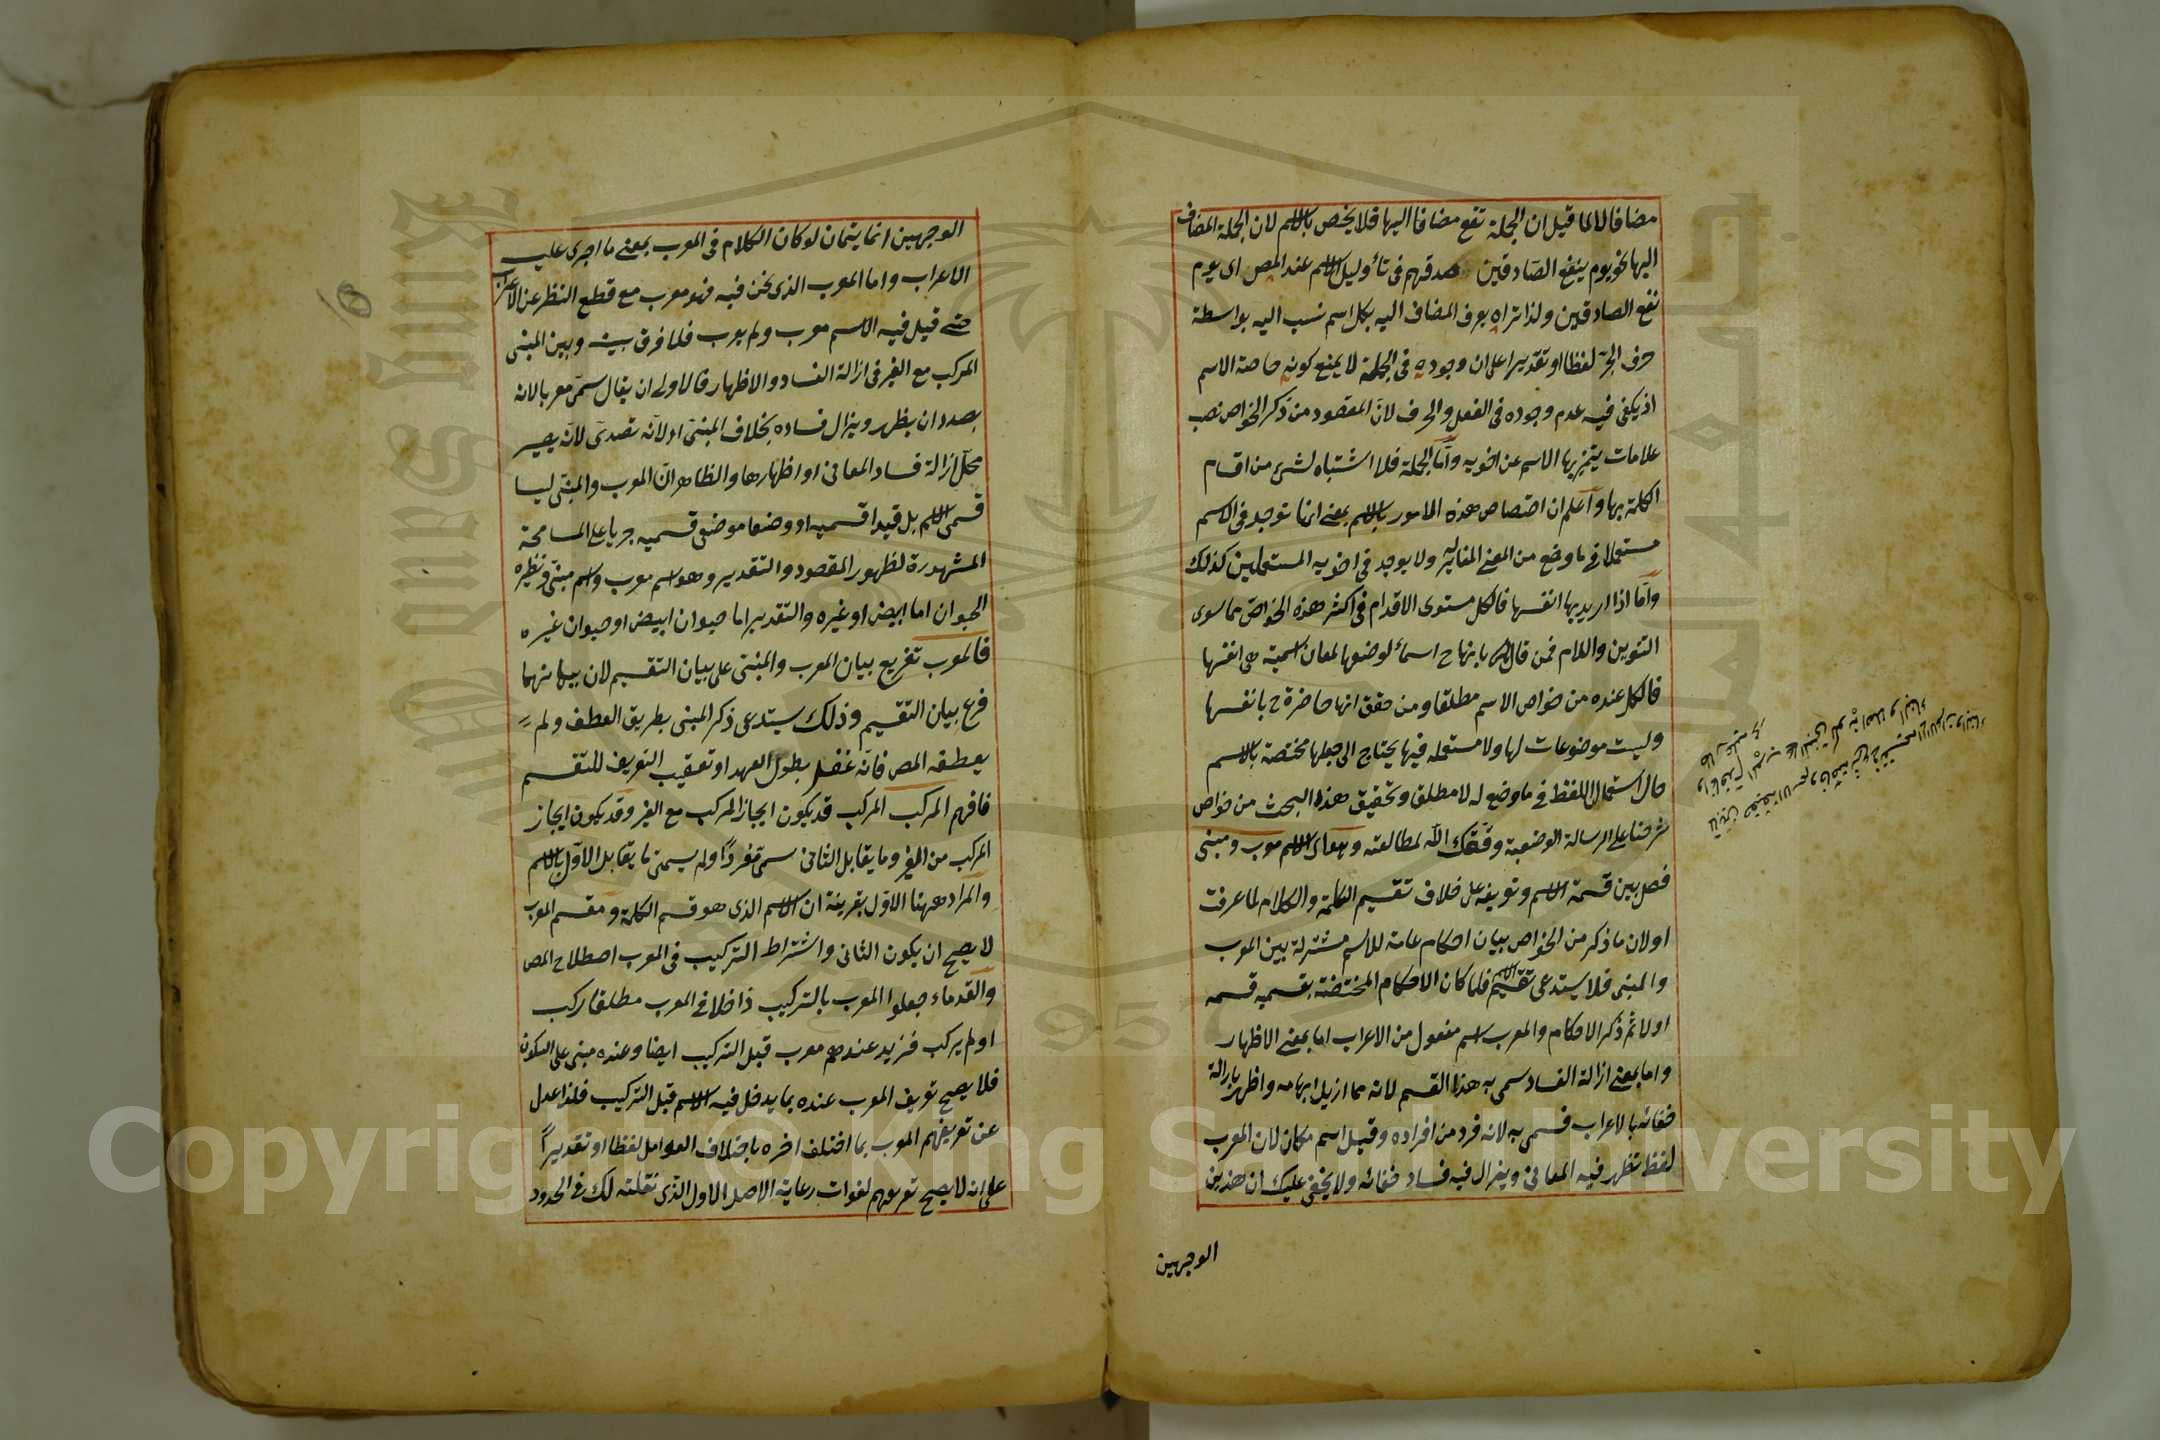 مضافا لالما قيل ان الجملة تقع مضافا اليها فلا يخص بالاسم لان الجملة المضاف
اليها نحو يوم ينفع الصادقين صدقهم فى تأويل الاسم عند المص اى يوم
نفع الصادقين ولذا تراه يعرف المضاف اليه بكل اسم نسب اليه بواسطة
حرف الجر لفظا او تقديرا على ان وجوده فى الجملة لا يمنع كونه خاصة الاسم
اذ يكفى فيه عدم وجوده فى الفعل والحرف لان المقصود من ذكر الخواص نصب
علامات يتميز بها الاسم عن اخويه واما الجملة فلا اشتباه لشئ من اقسام
الكلمة بها واعلم ان اختصاص هذه الامور بالاسم بمعنى انها توجد فى الاسم
مستعملا فى ما وضع من المعنى ولا يوجد فى اخويه المستعملين كذلك
واما اذا اريد بها انفسها فالكل مستوى الاقدام فى اكثر هذه الخواص مما سوى
التنوين واللام فمن قال بانها ح اسماء لوضعها لمعان اسمية هى انفسها
فالكل عنده من خواص الاسم مطلقا ومن حقق انها حاضرة ح بانفسها
وليست موضوعات لها ولا مستعمله فيها يحتاج الى جعلها مختصة بالاسم
حال استعمال اللفظ فى ما وضع له لا مطلق وتحقيق هذا البحث من خواص
شرحنا على الرسالة الوضعية وفقك الله لمطالعته وهو اى الاسم معرب ومبنى
فصل بين قسمة الاسم وتعريفه على خلاف تقسيم الكلمة والكلام لما عرفت
اولان ما ذكر من الخواص بيان احكام عامة للاسم مشتركة بين المعرب
والمبنى فلا يستدعى تقسيم الاسم فلما كان الاحكام المختصة بقسميه قسمه
اولا ثم ذكر الاحكام والمعرب اسم مفعول من الاعراب اما بمعنى الاظهار
واما بمعنى ازالة الفساد سمى به هذا القسم لانه مما ازيل ابهامه واظهر بازالة
خفائه بالاعراب فسمى به لانه فرد من افراده وقيل اسم مكان لان المعرب
لفظ تظهر فيه المعانى ويزال فيه فساد خفائه ولا يخفى عليك ان هذين
الوجهين
الوجهين انما يتمان لو كان الكلام فى المعرب بمعنى ما اجرى عليه
الاعراب واما المعرب الذى نحن فيه فهو معرب مع قطع النظر عن الاعراب
حتى قيل فيه الاسم معرب ولم يعرب فلما فرق بينه وبين المبنى
المركب مع الغير فى ازالة الفساد والاظهار فالاولى ان يقال سمى معربا لانه
بصدد ان يظهر ويزال فساده بخلاف المبنى او لانه تصدى لان يصير
محل ازالة فساد المعانى او اظهارها والظاهر ان المعرب والمبنى ليسا
قسمى الاسم بل قيدا قسميه او وضعا موضع قسميه جريا على المسامحة
المشهورة لظهور المقصود والتقدير وهو اسم معرب واسم مبنى ونظيره
الحيوان اما ابيض او غيره والتقدير اما حيوان ابيض او حيوان غيره
فالمعرب تفريع بيان المعرب والمبنى على بيان التقسيم لان بيانهما
فرع بيان التقسيم وذلك يستدعى ذكر المبنى بطريق العطف ولم
يعطفه المص فانه غفل بطول العهد او تعقيب التعريف للتقسيم
فافهم المركب المركب قد يكون ايجاز المركب مع الغير وقد يكون ايجاز
المركب من الغير وما يقابل الثانى سمى مفردا ولم يسم ما يقابل الاول بالاسم
والمراد ههنا الاول بقرينة ان الاسم الذى هو قسم الكلمة ومقسم المعرب
لا يصح ان يكون الثانى واشتراط التركيب فى المعرب اصطلاح المص
والقدماء جعلوا المعرب بالتركيب داخلا فى المعرب مطلقا ركب
او لم يركب فزيد عندهم معرب قبل التركيب ايضا وعنده مبنى على السكون
فلا يصح تعريف المعرب عنده بما يدخل فيه الاسم قبل التركيب فلذا عدل
عن تعريفهم المعرب بما اختلف اخره باختلاف العوامل لفظا او تقديرا
على انه لا يصح تعريفهم لفوات رعاية الاصل الاول الذى نقلته لك فى الحدود
Copyright © King Saud University
King Saud University
1957